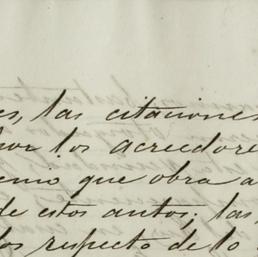 es, las citaciones
por los acreedore
enio que obra a
de estos autos; las
los respecto de lo